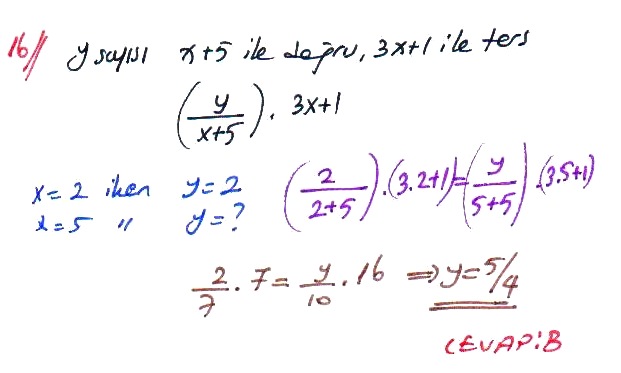 16// y sayısı x+5 ile doğru, 3x+1 ile ters
(y/(x+5)) . 3x+1
x=2 iken y=2 (2/(2+5)).(3.2+1)=(y/(5+5)).(3.5+1)
x=5 " y=?
2/7 . 7 = y/10 . 16 ⇒ y=5/4
CEVAP:B